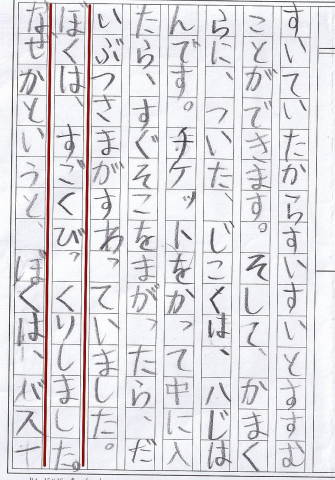 すいていたからすいすいとすすむ
ことができます。そして、かまく
らに、ついた、じこくは、八じは
んです。チケットをかって中に入
たら、すぐそこをまが、たら、だ
いぶつさまがすわっていました。
ぼくは、すごくびっくりしました。
なぜかというと、ぼくは、バス十